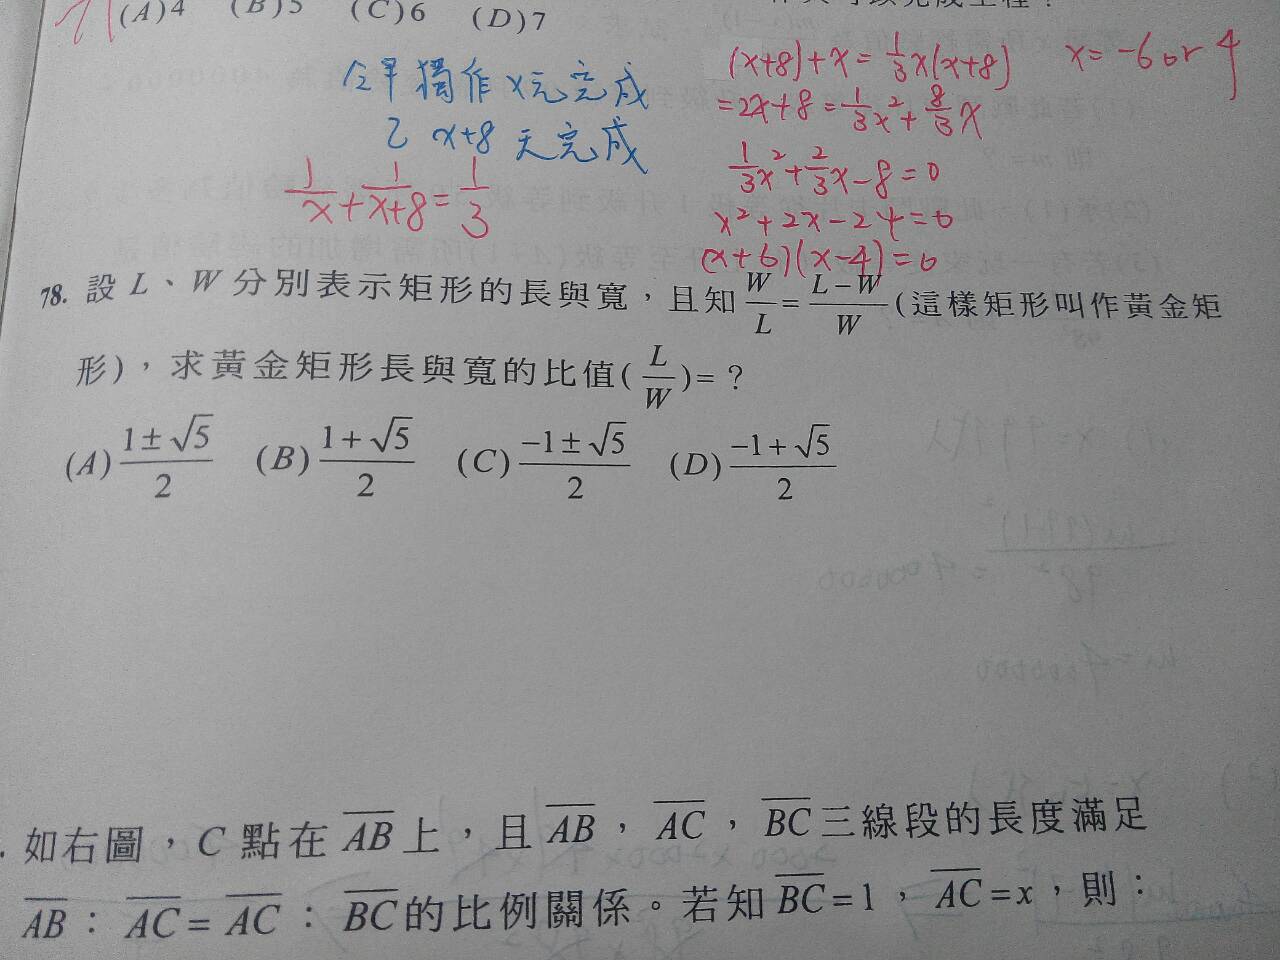 (A)4 (B)5 (C)6 (D)7
令甲獨作x元完成
乙 x+8 天完成
1/x + 1/(x+8) = 1/3
(x+8)+x = 1/3 x(x+8) x = -6 or 4
= 2x+8 = 1/3 x² + 8/3 x
1/3 x² + 2/3 x - 8 = 0
x² + 2x - 24 = 0
(x+6)(x-4) = 0
78. 設 L、W 分別表示矩形的長與寬，且知 W/L = (L-W)/W (這樣矩形叫作黃金矩
形)，求黃金矩形長與寬的比值( L/W )= ?
(A) (1±√5)/2 (B) (1+√5)/2 (C) (-1±√5)/2 (D) (-1+√5)/2
如右圖，C 點在 AB 上，且 AB，AC，BC 三線段的長度滿足
AB : AC = AC : BC 的比例關係。若知 BC = 1，AC = x，則：